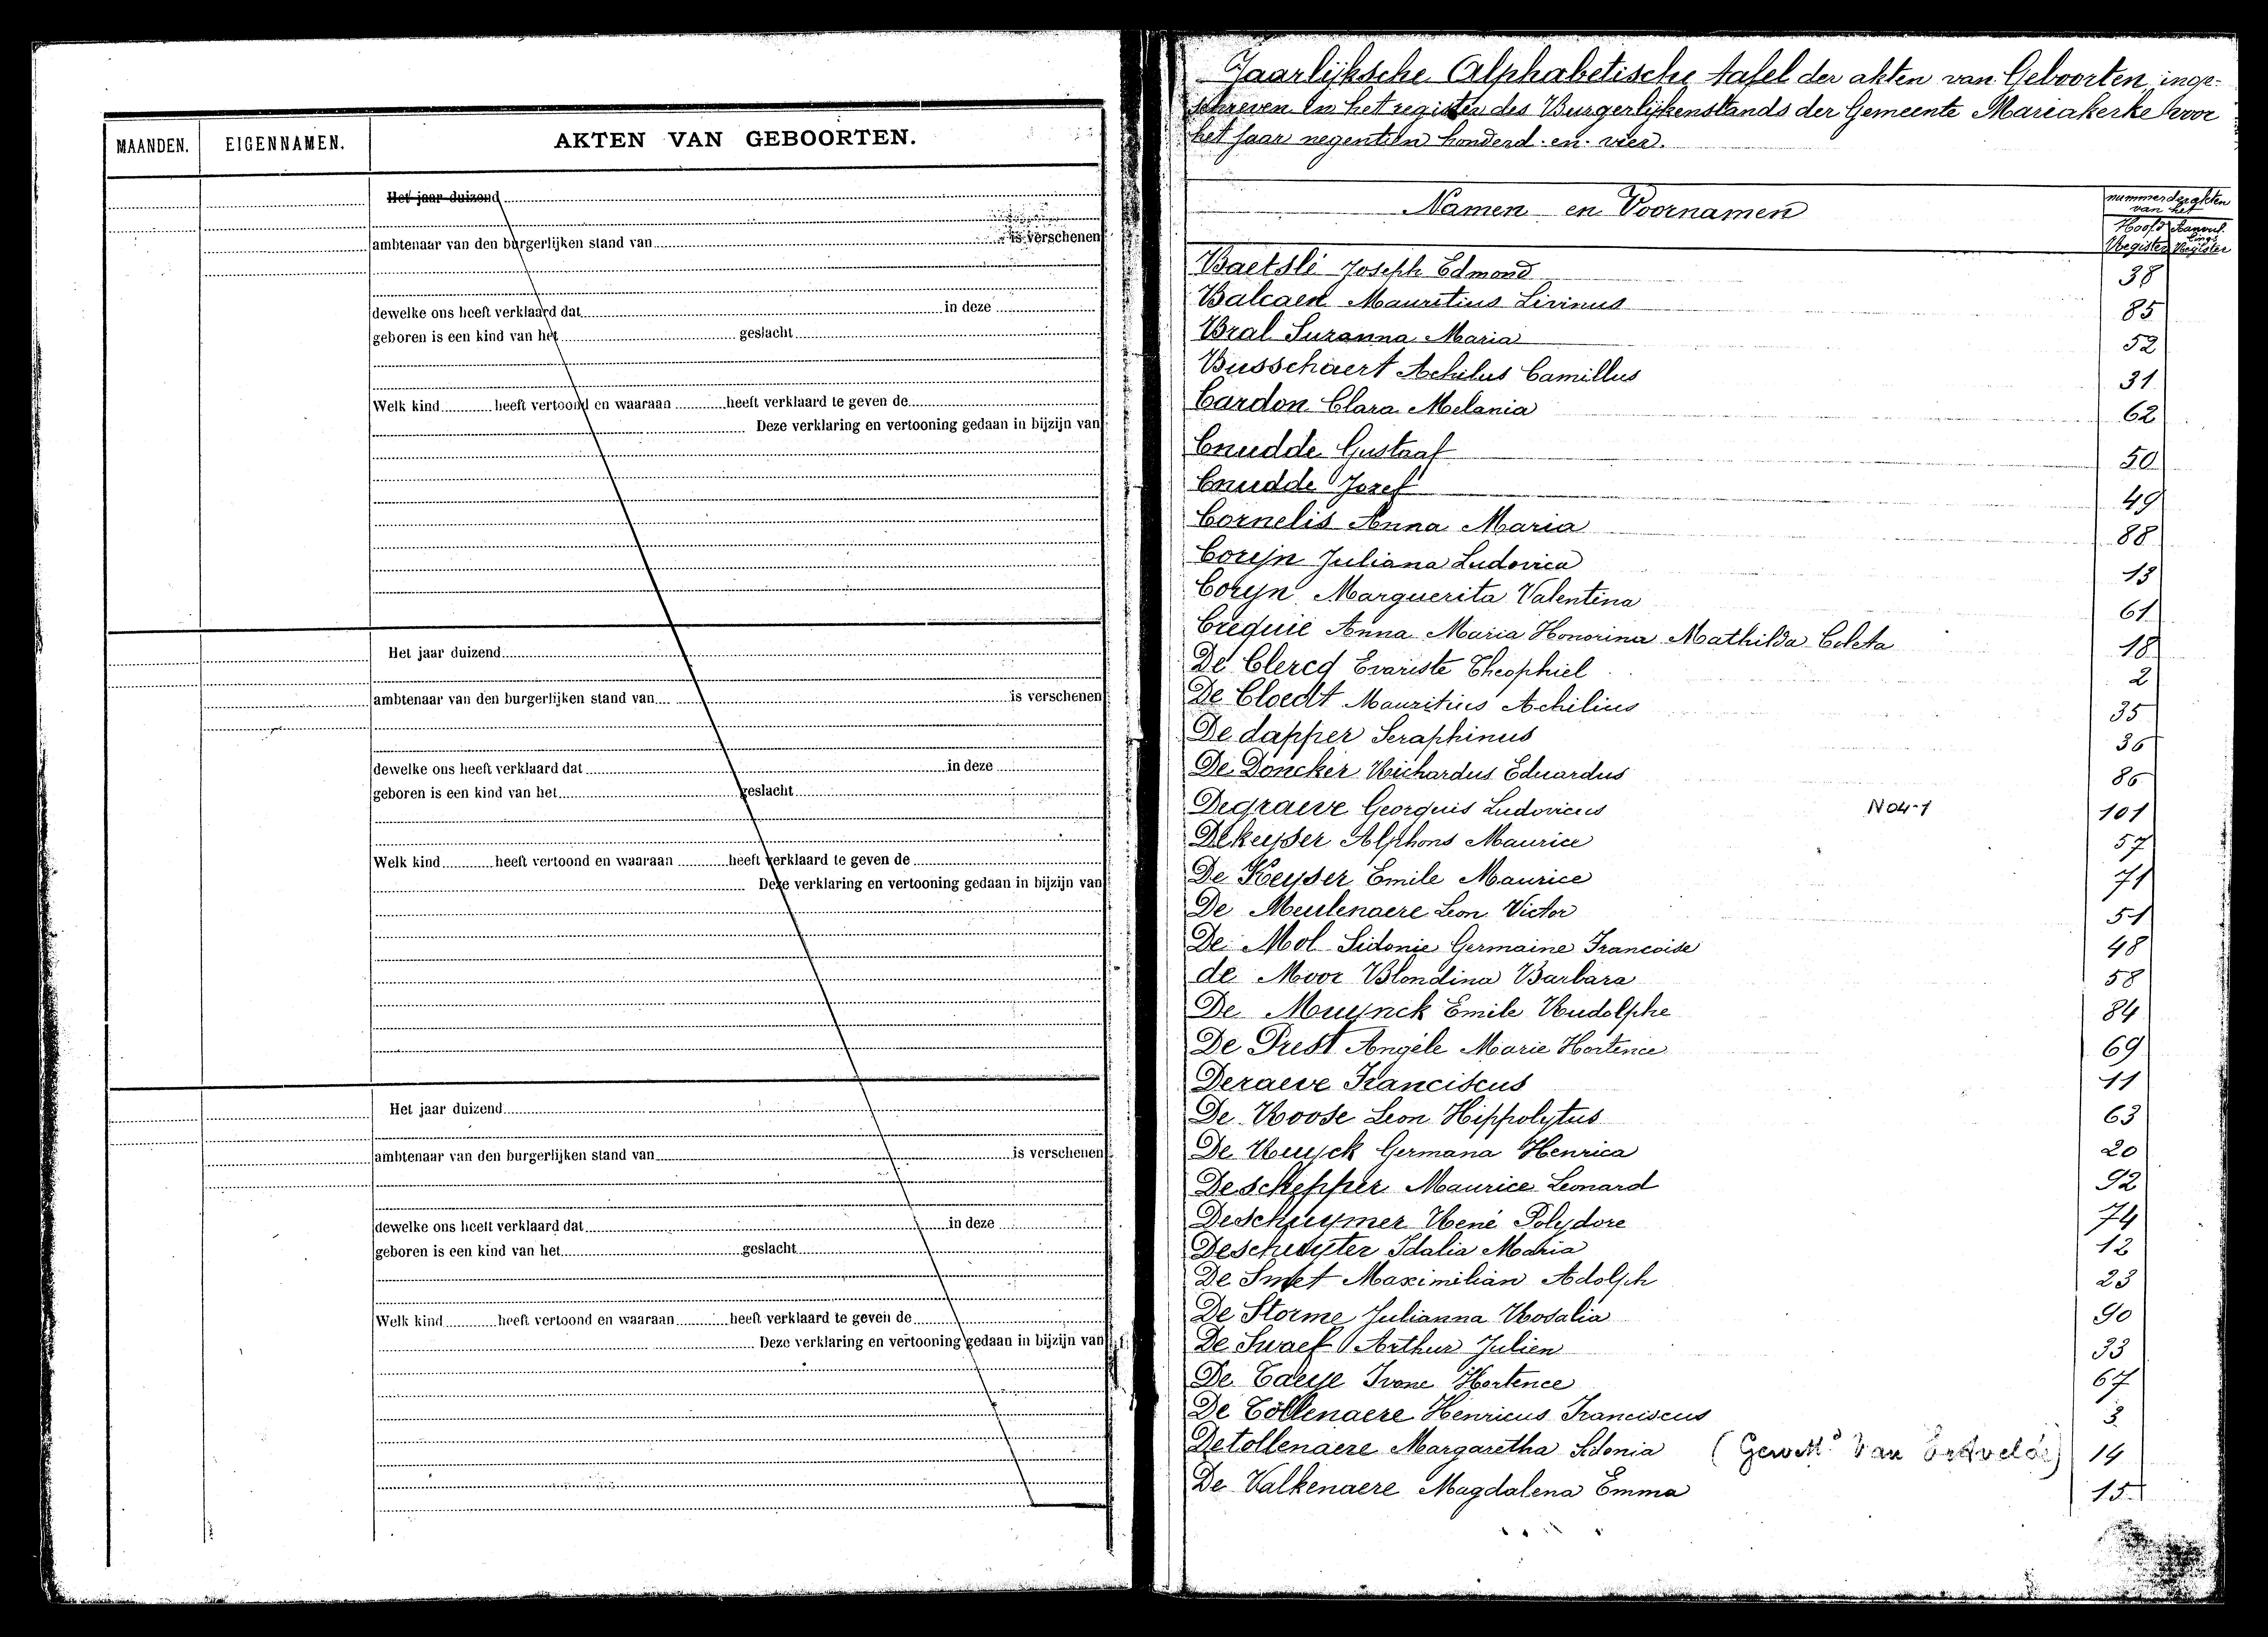 MAANDEN. EIGENNAMEN. AKTEN VAN GEBOORTEN.
Het jaar duizend
ambtenaar van den burgerlijken stand van is verschenen
dewelke ons heeft verklaard dat in deze
geboren is een kind van het geslacht
Welk kind heeft vertoond en waaraan heeft verklaard te geven de
Deze verklaring en vertooning gedaan in bijzijn van
Het jaar duizend
ambtenaar van den burgerlijken stand van is verschenen
dewelke ons heeft verklaard dat in deze
geboren is een kind van het geslacht
Welk kind heeft vertoond en waaraan heeft verklaard te geven de
Deze verklaring en vertooning gedaan in bijzijn van
Het jaar duizend
ambtenaar van den burgerlijken stand van is verschenen
dewelke ons heeft verklaard dat in deze
geboren is een kind van het geslacht
Welk kind heeft vertoond en waaraan heeft verklaard te geven de
Deze verklaring en vertooning gedaan in bijzijn van
Jaarlijksche Alphabetische tafel der akten van Geboorten, inge-
schreven in het register des Burgerlijkenstands der Gemeente Mariakerke voor
het jaar negentien honderd en vier.
Namen en Voornamen
nummer der akten
van het
Hoofd
Register Register
Baetslé Joseph Edmond 38
Balcaen Mauritius Livinus 85
Bral Suzanna Maria 52
Busschaert Achilus Camillus 31
Cardon Clara Melania 62
Cnudde Gustaaf 50
Cnudde Jozef 49
Cornelis Anna Maria 88
Coryn Juliana Ludovica 13
Coryn Marguerita Valentina 61
Crequie Anna Maria Honorina Mathilda Coleta 18
De Clercq Evariste Theophiel 2
De Cloedt Mauritius Achilius 35
De dapper Seraphinus 36
De Doncker Richardus Eduardus 86
Degraeve Georguis Ludovicus N04-1 101
Dekeyser Alphons Maurice 57
De Keyser Emile Maurice 71
De Meulenaere Leon Victor 51
De Mol Sidonie Germaine Francoise 48
de Moor Blondina Barbara 58
De Muynck Emile Rudolphe 84
De Prest Angèle Marie Hortence 69
Deraeve Franciscus 11
De Roose Leon Hippolytus 63
De Ruyck Germana Henrica 20
Deschepper Maurice Leonard 92
Deschuymer René Polydore 74
Descheuyter Idalia Maria 12
De Smet Maximilian Adolph 23
De Storme Julianna Rosalia 90
De Swaef Arthur Julien 33
De Taeye Ivone Hortence 67
De Tollenaere Henricus Franciscus 3
Detollenaere Margaretha Sidonia (Gewett. Van Ertvelde) 14
De Valkenaere Magdalena Emma 15